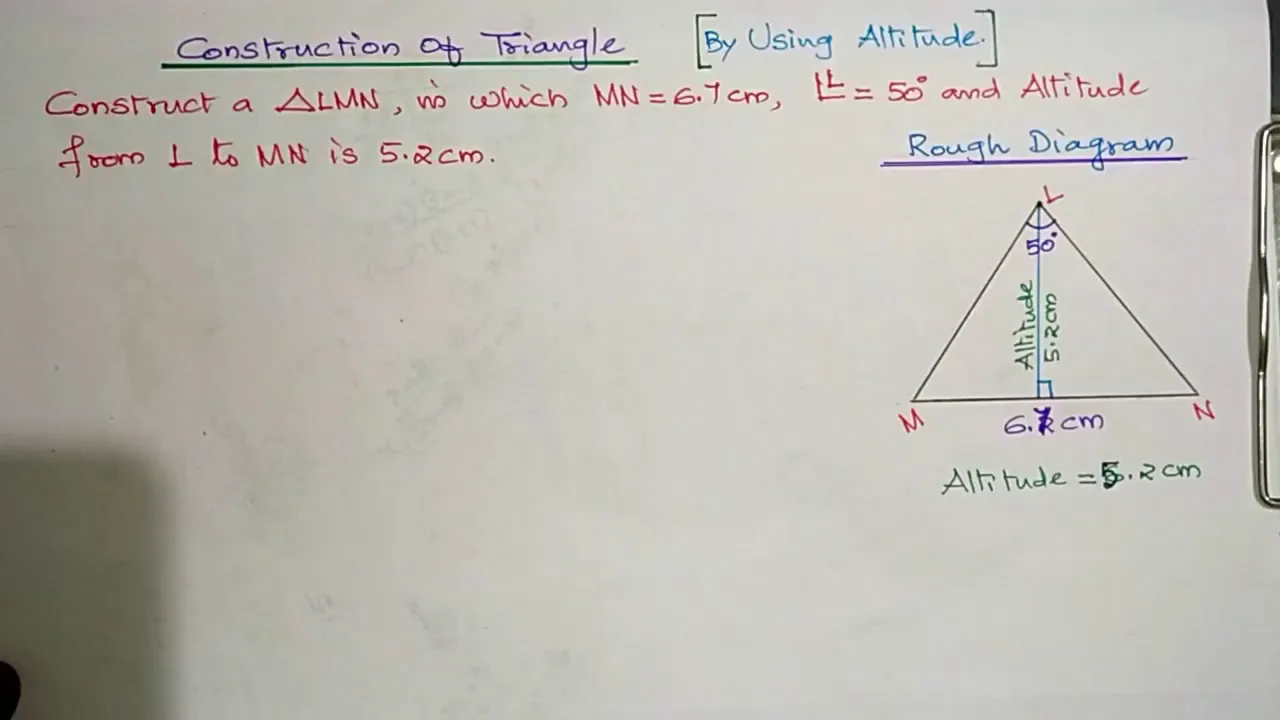 Construction Of Triangle [By Using Altitude.]
Construct a △LMN, in which MN = 6.7cm, ∠L = 50° and Altitude
from L to MN is 5.2cm.
Rough Diagram
L
50°
Altitude
5.2cm
M
6.7cm
N
Altitude = 5.2cm